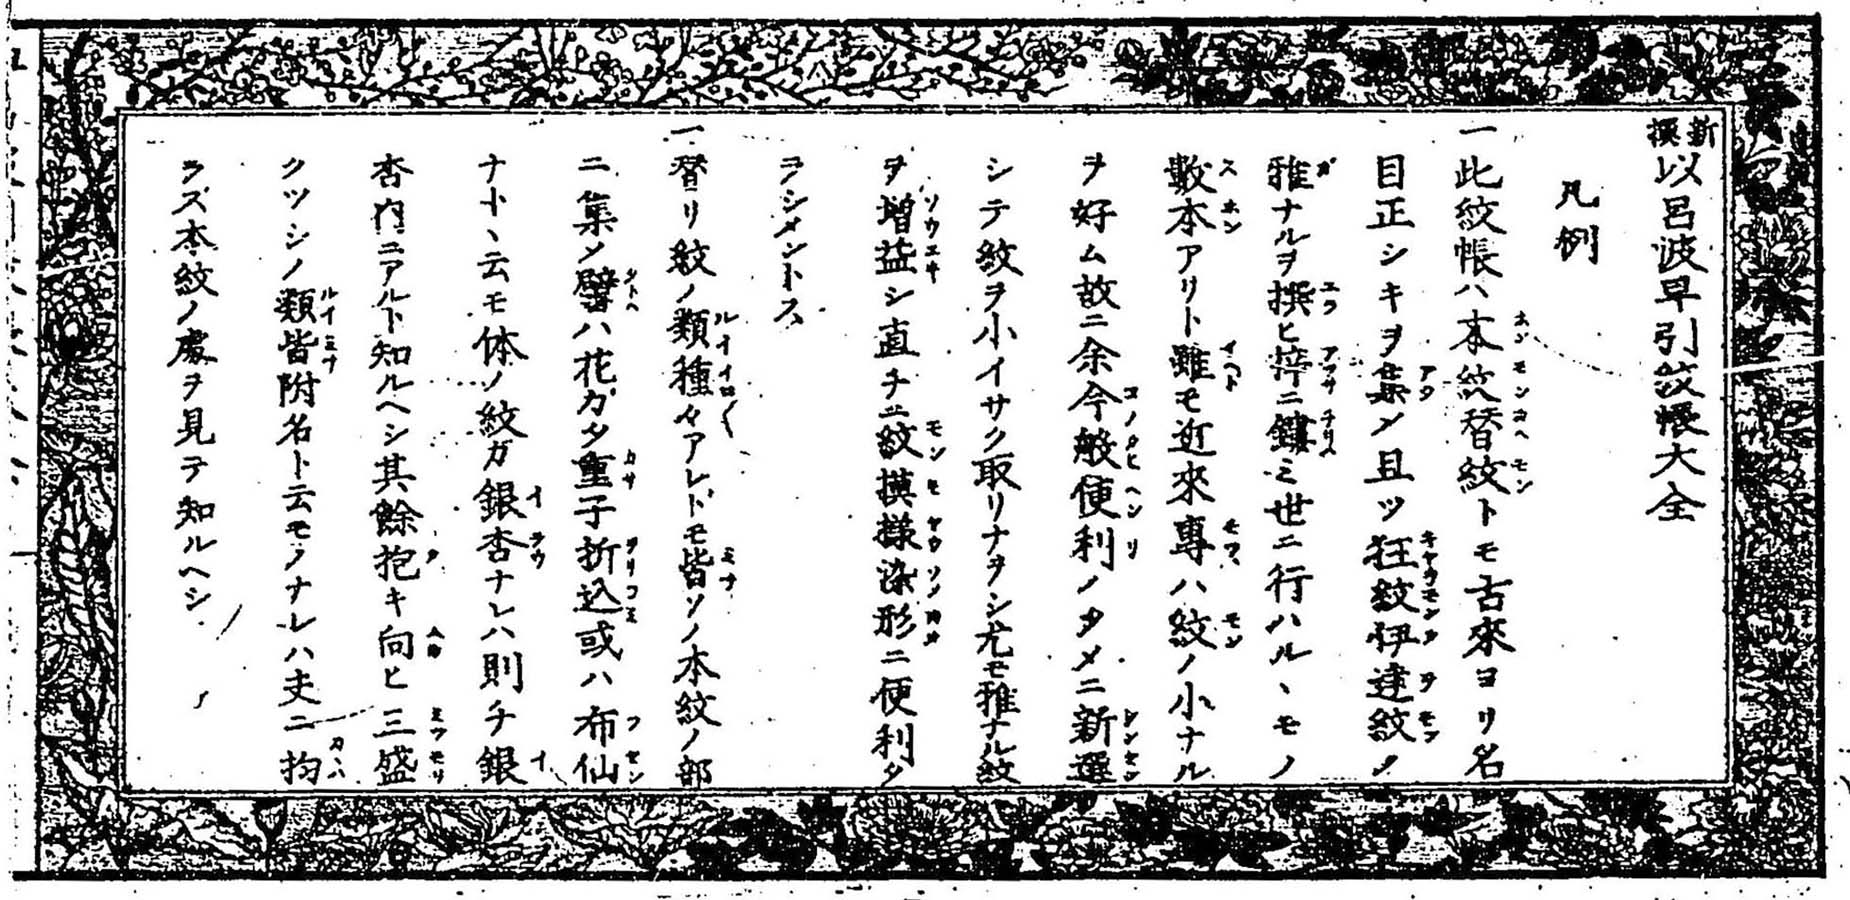 新撰以呂波早引紋帳大全
凡例
一此紋帳ハ本紋替紋トモ古來ヨリ名
目正シキヲ集メ且ツ狂紋伊達紋ノ
雅ナルヲ撰ヒ梓ニ鏤ミ世ニ行ハルヽモノ
數本アリト雖モ近來專ハ紋ノ小ナル
ヲ好ム故ニ余今般便利ノタメニ新選
シテ紋ヲ小イサク取リナヲシ尤モ雅ナル紋
ヲ増益シ直チニ紋摸様染形ニ便利タ
ラシメントス
一替リ紋ノ類種々アレドモ皆ソノ本紋ノ部
ニ集メ譬ハ花カタ重子折込或ハ布仙
ナトヽ云モ体ノ紋ガ銀杏ナレハ則チ銀
杏内ニアルト知ルヘシ其餘抱キ向ヒ三盛
クツシノ類皆附名ト云モノナレハ夫ニ拘
ラズ本紋ノ處ヲ見テ知ルヘシ